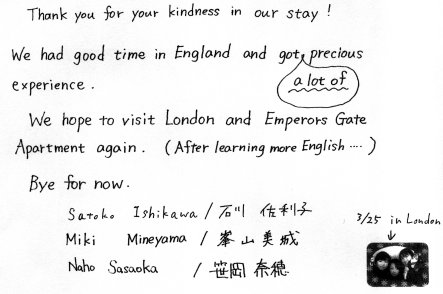 Thank you for your kindness in our stay!
We had good time in England and got precious
a lot of
experience.
We hope to visit London and Emperors Gate
Apartment again. (After learning more English ....)
Bye for now.
Satoko Ishikawa / 石川 佐利子
Miki Mineyama / 峯山 美城
Naho Sasaoka / 笹岡 奈穂
3/25 in London